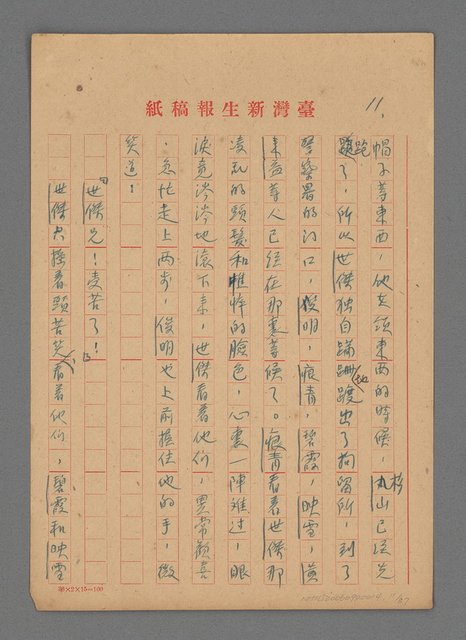 臺灣新生報稿紙
11.
帽子等東西,他去領東西的時候,杉山已經先
跑了,所以世傑独自蹒跚地踱出了拘留所,到了
警察署的门口,俊明,痕青,碧霞,映雪,黃
素益等人已经在那裏等候了。痕青看着世傑那
凌乱的頭髮和憔悴的臉色,心裏一陣难过,眼
淚竟涔涔地滾下来,世傑看着他们,異常欢喜
,急忙走上两步,俊明也上前握住他的手,微
笑道:
「世傑兄!受苦了!」
世傑只搖着頭苦笑,看着他们,碧霞和映雪
第×2×15—100
11/27